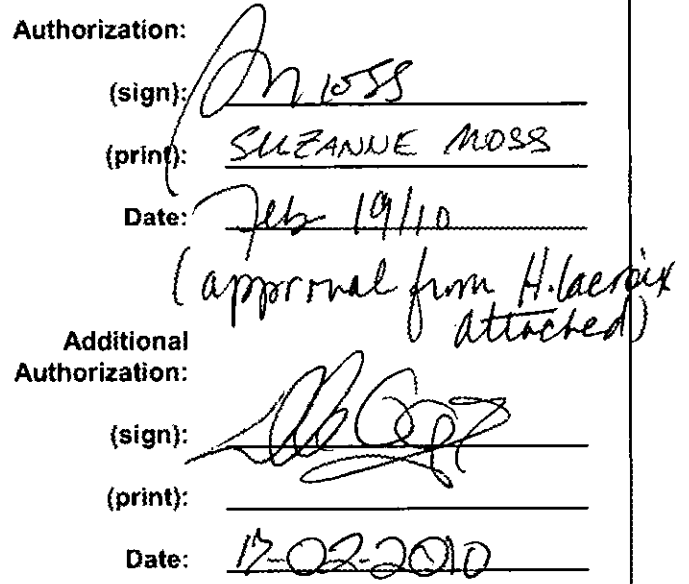 Authorization:
(sign): Moss
(print): SUZANNE MOSS
Date: Feb 19/10
(approval from H. Lacroix
attached)
Additional
Authorization:
(sign):
(print):
Date: 17-02-2010